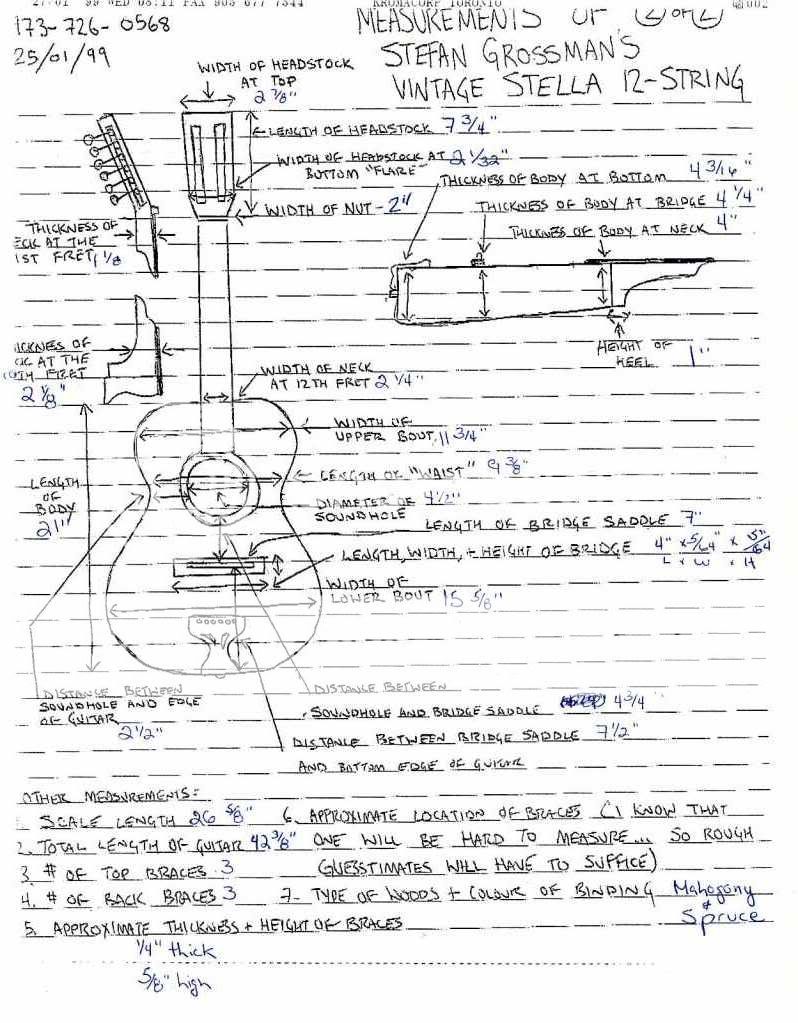 27/01 '99 WED 08:11 FAX 905 677 7344 KROMACORP TORONTO 002
173-726-0568
25/01/99
MEASUREMENTS OF 2 OF 2
STEFAN GROSSMAN'S
VINTAGE STELLA 12-STRING
WIDTH OF HEADSTOCK
AT TOP
2 7/8"
LENGTH OF HEADSTOCK 7 3/4"
WIDTH OF HEADSTOCK AT 2 1/32"
BOTTOM "FLARE"
WIDTH OF NUT - 2"
THICKNESS OF BODY AT BOTTOM 4 3/16"
THICKNESS OF BODY AT BRIDGE 4 1/4"
THICKNESS OF BODY AT NECK 4"
THICKNESS OF
ECK AT THE
1ST FRET 1 1/8
HEIGHT OF
HEEL 1"
ICKNESS OF
CK AT THE
FRET
2 1/8"
WIDTH OF NECK
AT 12TH FRET 2 1/4"
WIDTH OF
UPPER BOUT 11 3/4"
LENGTH OF "WAIST" 9 3/8"
DIAMETER OF 4 1/2"
SOUNDHOLE
LENGTH
OF
BODY
21"
LENGTH OF BRIDGE SADDLE 7"
LENGTH, WIDTH, + HEIGHT OF BRIDGE 4" x 5/64" x 5"/64
L x W x H
WIDTH OF
LOWER BOUT 15 5/8"
DISTANCE BETWEEN
SOUNDHOLE AND EDGE
OF GUITAR
2 1/2"
DISTANCE BETWEEN
SOUNDHOLE AND BRIDGE SADDLE 4 3/4"
DISTANCE BETWEEN BRIDGE SADDLE 7 1/2"
AND BOTTOM EDGE OF GUITAR
OTHER MEASUREMENTS:
1. SCALE LENGTH 26 5/8"
2. TOTAL LENGTH OF GUITAR 42 3/8"
3 # OF TOP BRACES 3
4. # OF BACK BRACES 3
5. APPROXIMATE THICKNESS + HEIGHT OF BRACES
1/4" thick
5/8" high
6. APPROXIMATE LOCATION OF BRACES (I KNOW THAT
ONE WILL BE HARD TO MEASURE... SO ROUGH
GUESSTIMATES WILL HAVE TO SUFFICE)
7- TYPE OF WOODS + COLOUR OF BINDING Mahogony
& Spruce